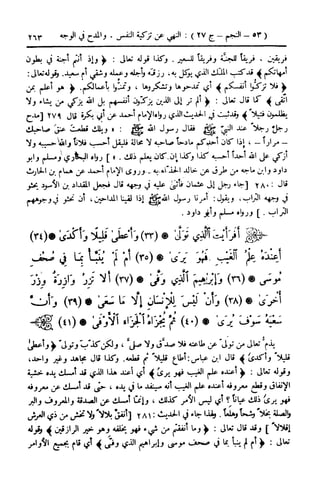 (٥٣ – النجم – ج ٢٧) : النهي عن تزكية النفس ، والمدح في الوجه ٢٦٣
فريقين . فريقاً للجنة وفريقاً للسعير . وكذا قوله تعالى : ﴿ وإذ أنتم أجنة في بطون
أمهاتكم ﴾ قد كتب الملك الذي يوكل به ، رزقه وأجله وعمله وشقي أم سعيد . وقوله تعالى :
﴿ فلا تزكوا أنفسكم ﴾ أي تمدحوها وتشكروها ، وتمنوا بأعمالكم . ﴿ هو أعلم بمن
اتقى ﴾ كما قال تعالى : ﴿ ألم تر إلى الذين يزكون أنفسهم بل الله يزكي من يشاء ولا
يظلمون فتيلا ﴾ وقد ثبت في الحديث الذي رواه الإمام أحمد عن أبي بكرة قال ٢٧٩ [ مدح
رجل رجلاً عند النبي ﷺ فقال رسول الله ﷺ : « ويلك قطعت عنق صاحبك
– مراراً – ، إذا كان أحدكم مادحاً صاحبه لا محالة فليقل أحسب فلاناً والله حسيبه ولا
أزكي على الله أحداً أحسبه كذا وكذا إن كان يعلم ذلك . » ] رواه البخاري ومسلم وأبو
داود وابن ماجه من طرق عن خالد الحذاء به . وروى الإمام أحمد عن همام بن الحارث
قال : ٢٨٠ [ جاء رجل إلى عثمان فأثنى عليه في وجهه قال فجعل المقداد بن الأسود يحثو
في وجهه التراب ، ويقول : أمرنا رسول الله ﷺ إذا لقينا المداحين ، أن نحثو في وجوههم
التراب . ] ورواه مسلم وأبو داود .
﴿ أَفَرَأَيْتَ ٱلَّذِي تَوَلَّىٰ ﴾ (٣٣) ﴿ وَأَعْطَىٰ قَلِيلًا وَأَكْدَىٰ ﴾ (٣٤)
﴿ أَعِندَهُ عِلْمُ ٱلْغَيْبِ فَهُوَ يَرَىٰ ﴾ (٣٥) ﴿ أَمْ لَمْ يُنَبَّأْ بِمَا فِي صُحُفِ
مُوسَىٰ ﴾ (٣٦) ﴿ وَإِبْرَٰهِيمَ ٱلَّذِي وَفَّىٰ ﴾ (٣٧) ﴿ أَلَّا تَزِرُ وَازِرَةٌ وِزْرَ
أُخْرَىٰ ﴾ (٣٨) ﴿ وَأَن لَّيْسَ لِلْإِنسَانِ إِلَّا مَا سَعَىٰ ﴾ (٣٩) ﴿ وَأَنَّ
سَعْيَهُ سَوْفَ يُرَىٰ ﴾ (٤٠) ﴿ ثُمَّ يُجْزَاهُ ٱلْجَزَاءَ ٱلْأَوْفَىٰ ﴾ (٤١)
يذم تعالى من تولى عن طاعته فلا صدق ولا صلى ، ولكن كذب وتولى ﴿ وأعطى
قليلاً وأكدى ﴾ قال ابن عباس : أطاع قليلاً ثم قطعه . وكذا قال مجاهد وغير واحد ،
وقوله تعالى : ﴿ أعنده علم الغيب فهو يرى ﴾ أي أعند هذا الذي قد أمسك يده خشية
الإنفاق وقطع معروفه أعنده علم الغيب أنه سينفد ما في يده ، حتى قد أمسك عن معروفه
فهو يرى ذلك عياناً ؟ أي ليس الأمر كذلك ، وإنما أمسك عن الصدقة والمعروف والبر
والصلة بخلاً وشحاً وهلعاً . ولهذا جاء في الحديث : ٢٨١ [ أنفق بلالاً ولا تخش من ذي العرش
إقلالاً ] وقد قال تعالى : ﴿ وما أنفقتم من شيء فهو يخلفه وهو خير الرازقين ﴾ وقوله
تعالى : ﴿ أم لم ينبأ بما في صحف موسى وإبراهيم الذي وفى ﴾ أي قام بجميع الأوامر